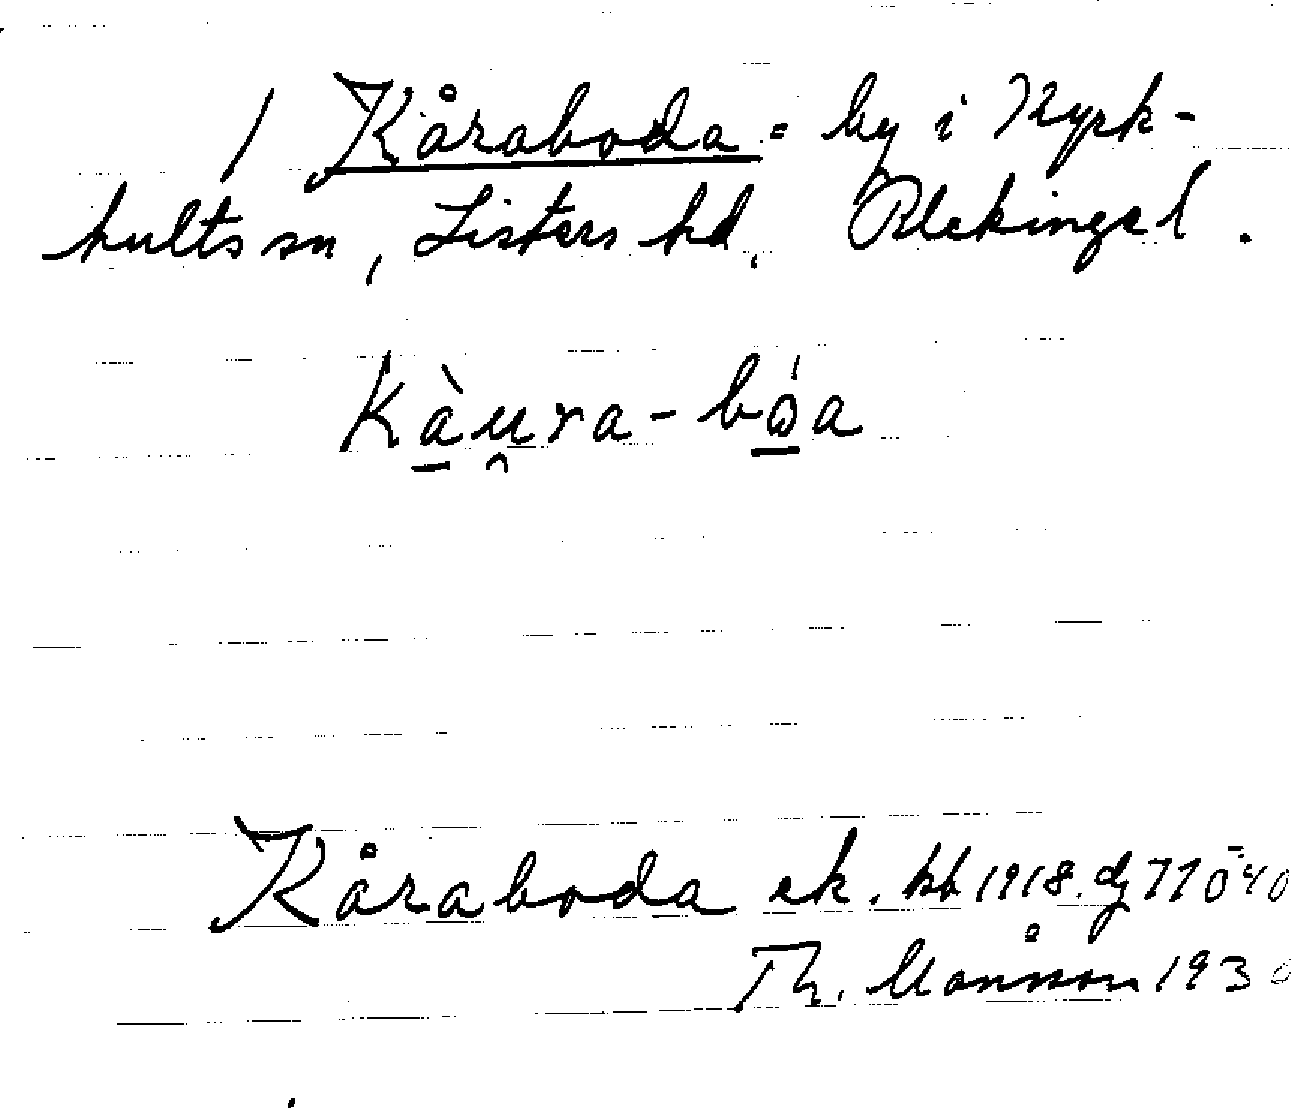 1 Kåraboda = by i Kyrk-
hults sn, Listers hd, Blekinge l.
Kàu̯ra-bóa
Kåraboda ek. kbl. 1918.
Th. Månsson 1930